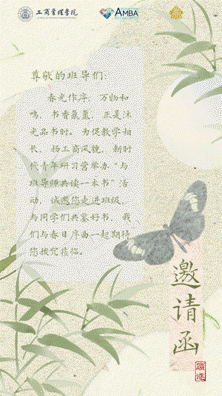 工商管理学院
AMBA
尊敬的班导们：
春光作序，万物和
鸣，书香氤氲，正是沐
光品书时。为促教学相
长，扬工商风貌，新时
代青年研习营举办“与
班导师共读一本书”活
动，诚邀您走进班级，
与同学们共鉴好书，我
们与春日序曲一起期待
您拨冗莅临。
邀请函